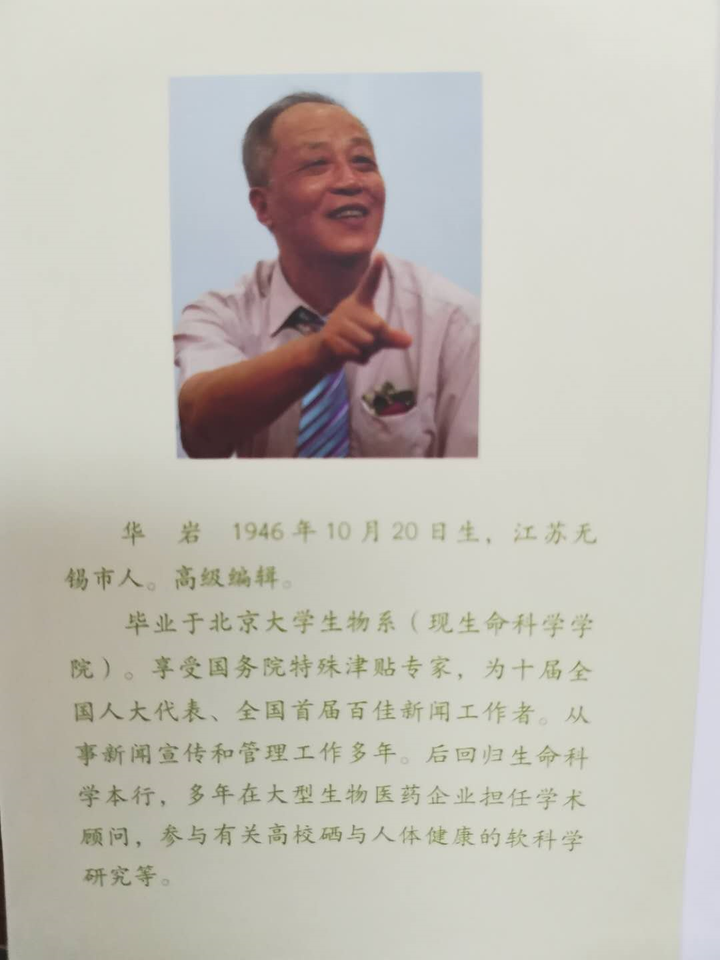 华 岩 1946年10月20日生，江苏无
锡市人。高级编辑。
毕业于北京大学生物系（现生命科学学
院）。享受国务院特殊津贴专家，为十届全
国人大代表、全国首届百佳新闻工作者。从
事新闻宣传和管理工作多年。后回归生命科
学本行，多年在大型生物医药企业担任学术
顾问，参与有关高校硒与人体健康的软科学
研究等。